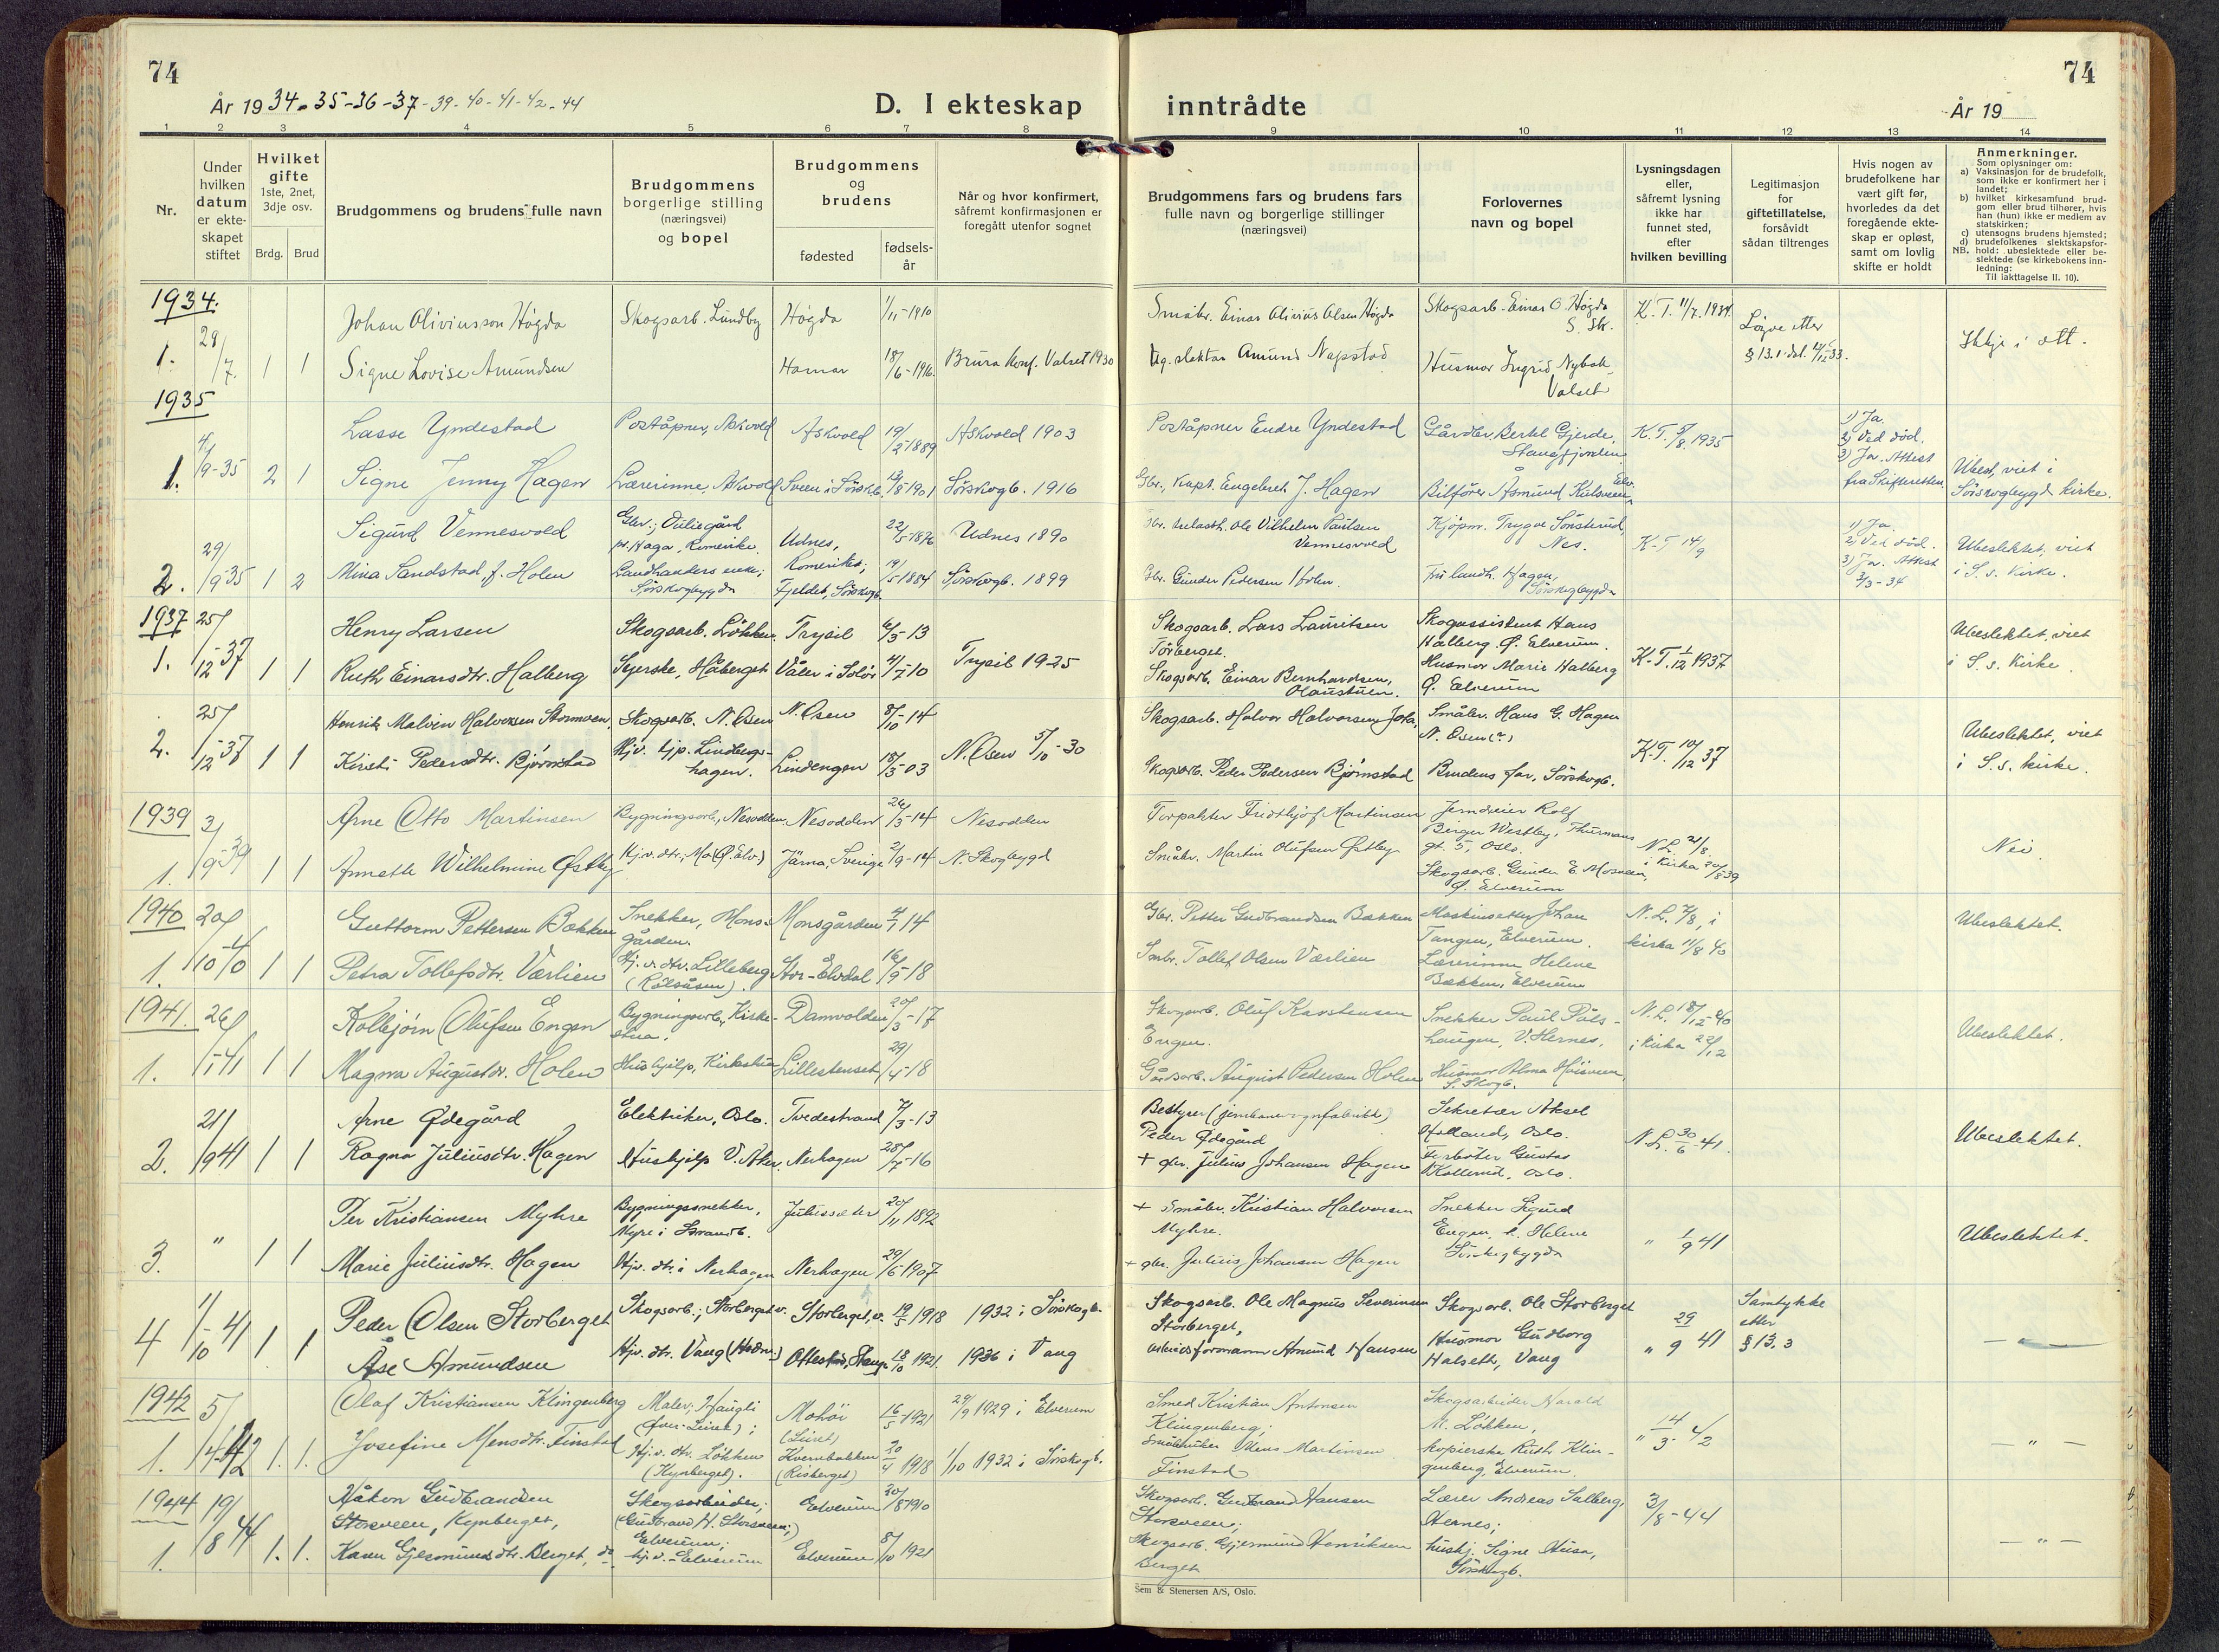 74
År 1934-35-36-37-39-40-41-42-44
D. I ekteskap
1 2 3 4 5 6 7 8
Nr.
Under hvilken datum er ekte-skapet stiftet
Hvilket gifte
1ste, 2net, 3dje osv.
Brdg. Brud
Brudgommens og brudens fulle navn
Brudgommens borgerlige stilling (næringsvei) og bopel
Brudgommens og brudens
fødested
fødsels-år
Når og hvor konfirmert, såfremt konfirmasjonen er foregått utenfor sognet
1934.
Johan Oliviusson Høgda Skogsarb. Lundby Høgda 1/11-1910
1. 29/7. 1 1 Signe Lovise Amundsen Hamar 18/6-1916. Brura konf. Valset 1930
1935
Lasse Yndestad Poståpner, Askvold Askvold 19/2-1889 Askvold 1903
1. 4/9-35 2 1 Signe Jenny Hagen Lærerinne, Askvold Sveen i Sörskb. 13/8-1901 Sörskogb. 1916
Sigurd Vennesvold Gbr.; Duliegård pr. Haga, Romerike. Udnes, Romerike; 22/5-1876 Udnes 1890
2. 29/9-35 1 2 Mina Sandstad f. Holen Landhandlers enke; Sörskogbygda Fjeldet, Sörskogb. 19/5-1884 Sörskogb. 1899
1937
Henry Larsen Skogsarb. Løkken. Trysil 6/5-13
1. 25/12-37 1 1 Ruth Einarsdtr. Halberg Syerske, Håberget Våler i Solör 4/7-10 Trysil 1925
Henrik Malvin Halvorsen Stormoen Skogsarb. N. Osen N. Osen 8/10-14
2. 25/12-37 1 1 Kirsti Pedersdtr. Bjørnstad Hjv. hjp. Lindbergs-hagen. Lindengen 18/3-03 N. Osen 5/10-30
1939
Arne Otto Martinsen Bygningsarb., Nesodden. Nesodden 26/3-14 Nesodden
1. 3/9-39 1 1 Annette Wilhelmine Østby Hjv. dtr; Mo (Ø. Elv.) Järna, Sverige 2/9-14 N. Skogbygd
1940
Guttorm Pettersen Bækken Snekker, Mons-gården. Monsgården 4/7 14
1. 20/10-40 1 1 Petra Tollefsdtr. Værlien Hj. v. dtr. Lilleberg Stor-Elvdal 16/9-18
1941.
Kolbjörn Olufsen Engen Bygningsarb., Kirke-stua. Damvolden 20/3-17
1. 26/1-41 1 1 Magna Augustdr. Holen Hushjelp, Kirkestua Lillestenset 29/4-18
Arne Ødegård Elektriker, Oslo. Tvedestrand 7/3-13
2. 21/9 41 1 1 Ragna Juliusdtr. Hagen Hushjelp V. Aker. Nerhagen
Per Kristiansen Myhre Bygningssnekker, Julussæter 20/11 1892
3. " 1 1 Marie Juliusdtr. Hagen Hjv. dtr. i Nerhagen Nerhagen 29/6 1907
Peder Olsen Storberget Skogsarb.; Storberget v. Storberget, v. 19/5 1918 1932 i Sörskogb.
4 1/10-41 1 1 Åse Amundsen Hjv. dtr. Vang (Hedm.) Ottestad, Stange 18/10 1921. 1936 i Vang
1942
Olaf Kristiansen Klingenberg Maler; Haugli 16/5-1921 29/9 1929 i Elverum
1. 5/4-42 1. 1. Josefine Mensdtr. Finstad Hj. v. dtr. Løkken (Kynberget). Kvernbakken (Risberget) 20/4 1918 1/10 1932 i Sörskogb.
1944
Håkon Gudbrandsen Storsveen, Kynberget, Skogsarbeider; (Gudbrand H. Storsveen;) Elverum; Elverum 30/8 1910
1. 19/8 44 1. 1. Karen Gjermundsdtr. Berget, do hj. v. - Elverum Elverum 8/10 1921
74
inntrådte
År 19
9 10 11 12 13 14
Brudgommens fars og brudens fars fulle navn og borgerlige stillinger (næringsvei)
Forlovernes navn og bopel
Lysningsdagen eller, såfremt lysning ikke har funnet sted, efter hvilken bevilling
Legitimasjon for giftetillatelse, forsåvidt sådan tiltrenges
Hvis nogen av brudefolkene har vært gift før, hvorledes da det foregående ekte-skap er opløst, samt om lovlig skifte er holdt
Anmerkninger.
Som oplysninger om:
a) Vaksinasjon for de brudefolk, som ikke er konfirmert her i landet;
b) hvilket kirkesamfund brud-gom eller brud tilhører, hvis han (hun) ikke er medlem av statskirken;
c) utensogns brudens hjemsted;
d) brudefolkenes slektskapsfor-hold: ubeslektede eller be-slektede (se kirkebokens inn-ledning:
NB. Til iakttagelse II. 10).
Småbr. Einar Olivius Olsen Høgda Skogsarb. Einar O. Høgda S. Sk. K. T. 11/7. 1934. Løyve etter § 13.1
Amund Napstad Husmor Ingrid Nybak, Valset Ikkje i ætt.
Poståpner Endre Yndestad Gårdbr. Bertel Gjerde, Stangfjorden K. T. 8/8. 1935 1) Ja. 2) Ved död. 3) Ja. Attest fra Skifteretten.
Gbr., Kapt. Engebret J. Hagen Bilförer Åsmund Kulsveen, Elv. Ubesl, viet i Sörskogbygd kirke.
Ole Vilhelm Paulsen Vennesvold Kjöpm. Trygve Sönsterud, Nes. K. T 14/9 1) Ja. 2) Ved död. 3) Ja. Attest 3/3-34
Gbr. Gunder Pedersen Holen. Fru landh. Hagen, Sörskogbygda Ubeslektet, viet i S. s. Kirke.
Skogsarb. Lars Lauritsen Törberget. Skogassistent Hans Halberg Ø. Elverum.
Skogsarb. Einar Bernhardsen, Olaustuen. Husmor Marie Halberg Ø. Elverum K. T. 1/12 1937 Ubeslektet, viet i S. s. Kirke.
Skogsarb. Halvor Halvorsen Småbr. Hans G. Hagen N. Osen (?)
Skogsarb. Peder Pedersen Bjørnstad Brudens far, Sörskogb. K. T. 10/12 37 Ubeslektet, viet i S. s. kirke.
Fridthjof Martinsen Rolf Birger Westby, Thurmans gt. 5, Oslo.
Småbr. Martin Olufsen Østby Skogsarb. Gunder E. Mosveen, Ø. Elverum N. L. 21/8 i kirka 20/8 39 Nei.
Gbr. Petter Gudbrandsen Bækken Johan Tangen, Elverum. N. L. 7/8, i kirka 11/8 40 Ubeslektet.
Smbr. Tollef Olsen Værlien Lærerinne Helene Bækken, Elverum
Skogsarb. Oluf Karstensen Engen. Snekker Paul Pålshaugen, V. Hernes. N. L. 18/12-40 i kirka 22/12 Ubeslektet.
Gårdsarb. August Pedersen Holen Husmor Alma Moisveen, S. Skogb.
Bestyrer Peder Ødegård Sekretær Aksel Holland, Oslo. N. L. 30/6-41.
+ gbr. Julius Johansen Hagen Gustav Kollerud, Oslo. Ubeslektet.
+ Småbr. Kristian Halvorsen Myhre. Snekker Sigurd Engen, L. Helene Sörskogbygda " 1/9 41 Ubeslektet.
+ gbr. Julius Johansen Hagen
Skogsarb. Ole Magnus Severinsen Storberget, Skogsarb. Ole Storberget Samtykke etter § 13.3
Amund Hansen Husmor Gudborg Halseth, Vang " 29/9 41 —
Smed Kristian Antonsen Klingenberg; Skogsarbeider Harald M. Løkken, " 14/3-42
Småbruker Mens Martinsen Finstad kopierske Ruth Klingenberg, Elverum. — " —
Skogsarb. Gudbrand Hansen Storsveen; Lærer Andreas Salberg, Hernes; 3/8-44
Skogsarb. Gjermund Henriksen Berget hushj. Signe Husa, Sörskogb. — " —
Sem & Stenersen A/S, Oslo.